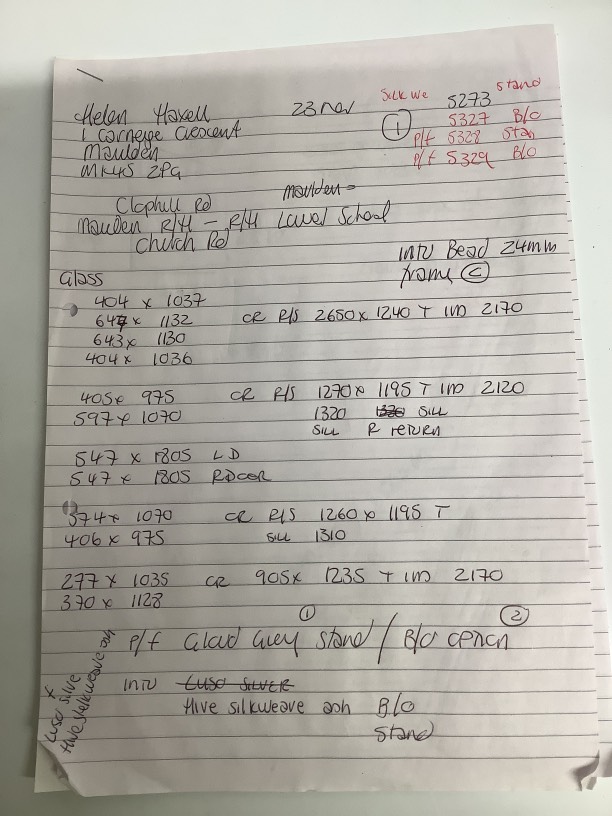 Helen Haxell 23 Nov
1 Carnegie Crescent
Maulden
MK45 2PG
SILK WE 5273 stand
① 5327 B/O
P/f 5328 Stan
P/f 5329 B/O
Maulden
Clophill Rd
Maulden R/H - R/H Lower School
Church Rd
INTU Bead 24mm
frame Ⓒ
Glass
404 x 1037
647 x 1132 CR R/S 2650 x 1240 T 1m 2170
643 x 1130
404 x 1036
405 x 975 CR R/S 1270 x 1195 T 1m 2120
597 x 1070 1320 1320 SILL
SILL R RETURN
547 x 1805 LD
547 x 1805 RDOOR
374 x 1070 CR R/S 1260 x 1195 T
406 x 975 SILL 1310
277 x 1035 CR 905 x 1235 T 1m 2170
370 x 1128
① ②
P/f Cloud Grey Stand / B/O
INTU LUSO SILVER
Hive silkweave ash B/O
Stand
Luso silve
Hive silkweave ash